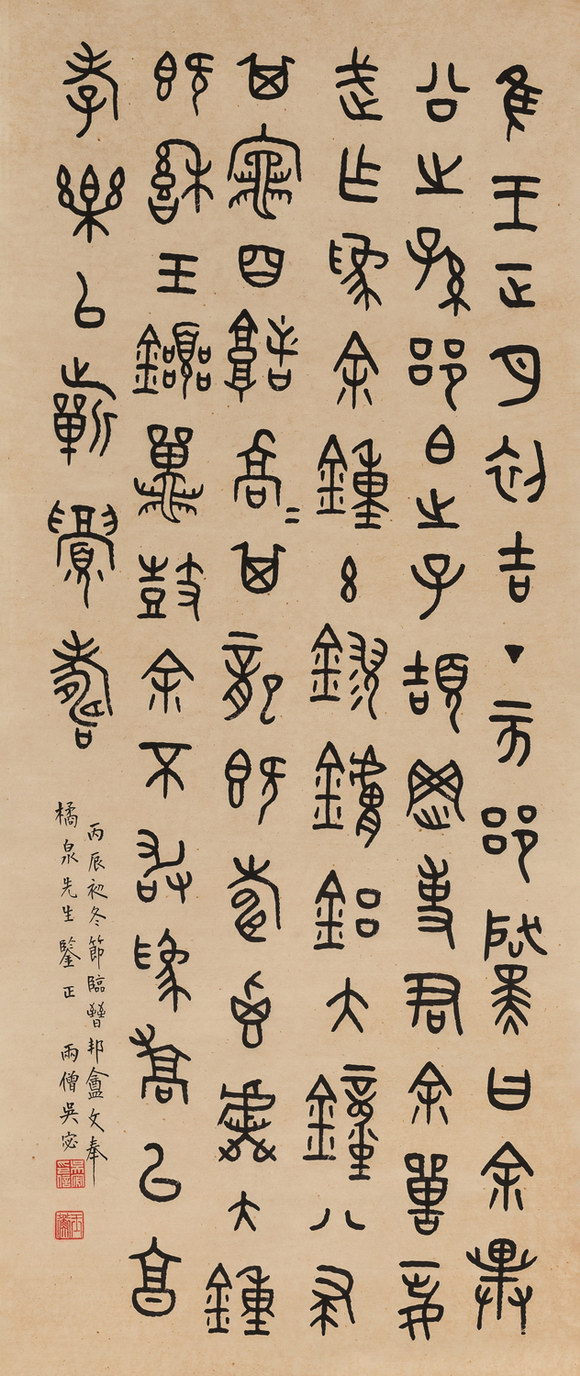 隹王正月初吉丁亥郘黛曰余畢
公之孫郘白之子頡岡事君余嘼
武乍為余鐘玄鏐鏞鋁大鐘八聿
其竈四堵喬=其龍既壽鬯虡大鐘
既王鼉鼓余不敢為喬以享
孝樂以祈眉壽
丙辰初冬節臨邦盦文奉
橘泉先生鑒正 雨僧吳宓